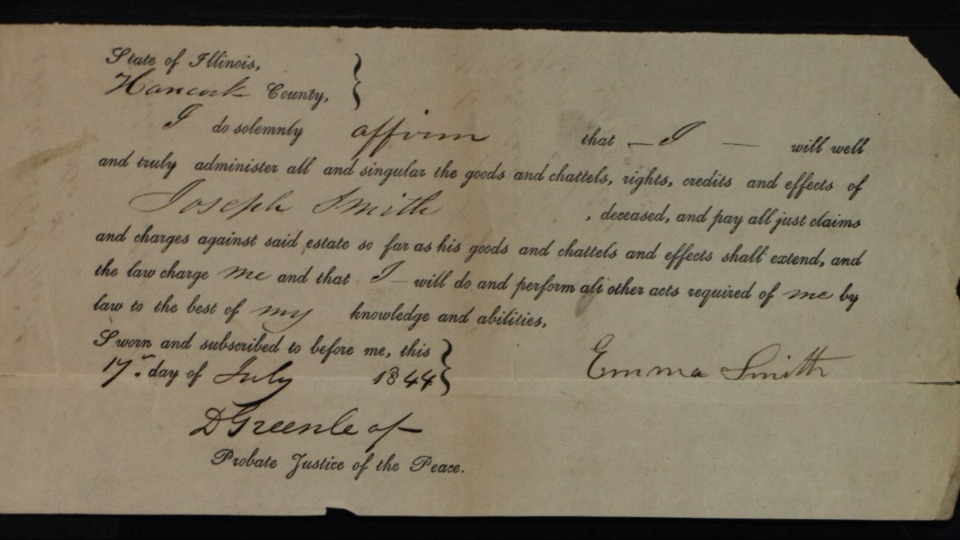 State of Illinois,
Hancock County,
I do solemnly affirm that — I — will well
and truly administer all and singular the goods and chattels, rights, credits and effects of
Joseph Smith , deceased, and pay all just claims
and charges against said estate so far as his goods and chattels and effects shall extend, and
the law charge me and that I — will do and perform all other acts required of me by
law to the best of my knowledge and abilities,
Sworn and subscribed to before me, this
17th day of July 1844
Emma Smith
D Greenleaf
Probate Justice of the Peace.